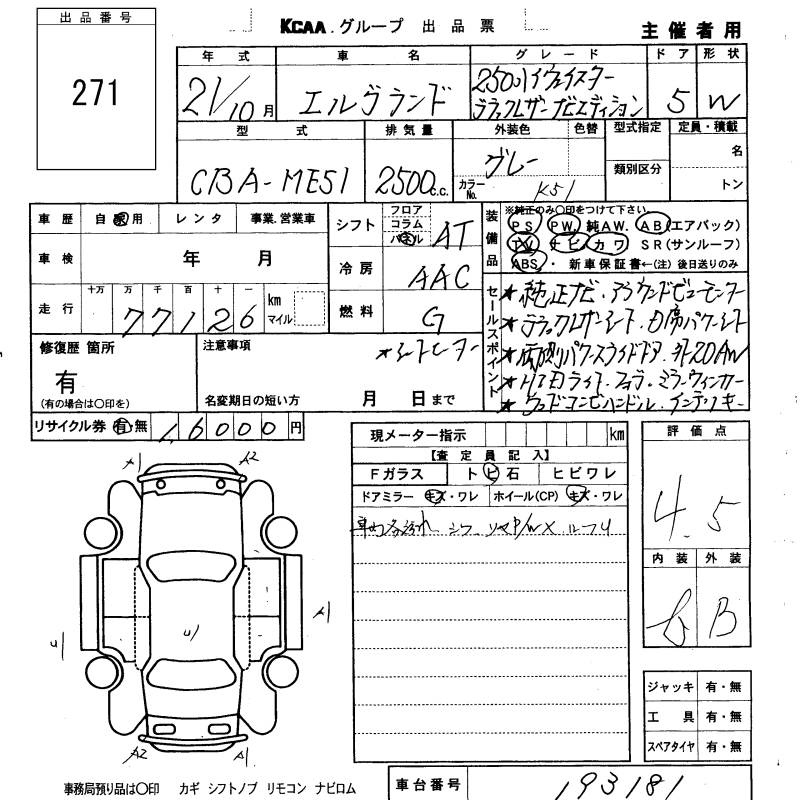 出品番号
271
KCAA.グループ 出品票
主催者用
年式 車名 グレード ドア 形状
21/10月 エルグランド 2500ハイウェイスター
ブラックレザーナビエディション 5 W
型式 排気量 外装色 色替 型式指定 定員・積載
CBA-ME51 2500c.c. グレー 名
カラーNo. K51 類別区分 トン
車歴 自家用 レンタ 事業.営業車
車検 年 月
走行 十万 万 千 百 十 一
77126 km マイル
シフト フロア コラム パネル AT
冷房 AAC
燃料 G
装備品 ※純正のみ〇印をつけて下さい
PS PW. 純AW. AB(エアバック)
TV ナビ カワ SR(サンルーフ)
ABS・ 新車保証書←(注)後日送りのみ
セールスポイント
★純正ナビ・アラウンドビューモニター
★ブラックレザーシート・
★両側パワースライドドア・外20AW
★HIDライト・・ミラーウィンカー
★ウッドコンビハンドル・インテリキー
修復歴 箇所
有
(有の場合は〇印を)
注意事項
★シートヒーター
名変期日の短い方 月 日まで
リサイクル券 有 無 16000円
現メーター指示 km
【査定員記入】
Fガラス トビ石 ヒビワレ
ドアミラー キズ・ワレ ホイール(CP) キズ・ワレ
評価点
4.5
内装 外装
B
A1 A2
A1
U1
U1
A2 A1
ジャッキ 有・無
工具 有・無
スペアタイヤ 有・無
事務局預り品は〇印 カギ シフトノブ リモコン ナビロム
車台番号 193181